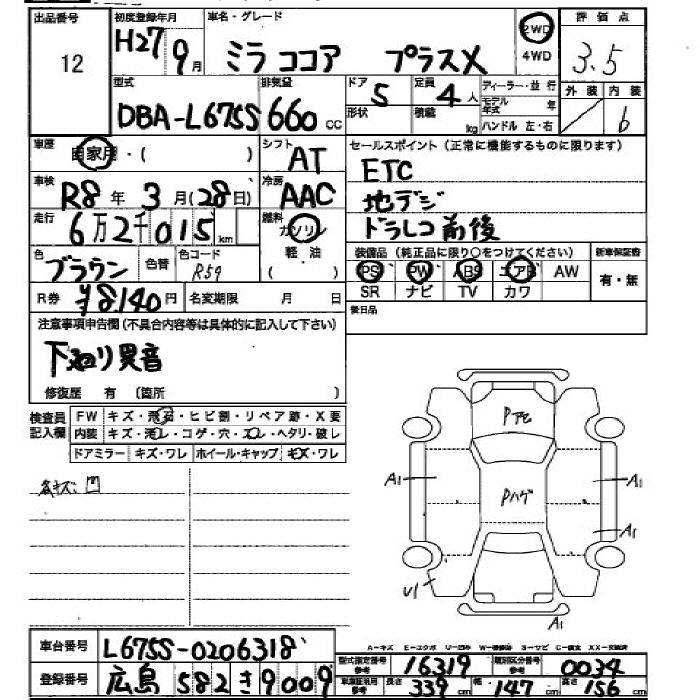 出品番号 初度登録年月 車名・グレード 評価点
12 H27 9月 ミラ ココア プラスX 2WD 4WD 3.5
型式 排気量 ドア 5 定員 4人 ディーラー・並行 外装 内装
DBA-L675S 660cc 形状 積載 kg モデル年式 年 ハンドル 左・右 b
車歴 自家用・( ) シフト AT セールスポイント (正常に機能するものに限ります)
車検 R8年 3月 (28日) 冷房 AAC ETC
地デジ
走行 6万2千015km 燃料 ガソリン ドラレコ 前後
色 ブラウン 色替 色コード R59 軽油 ( ) 装備品 (純正品に限り○をつけてください) 新車保証書
PS PW ABS エアB AW 有・無
R券 ¥8,140円 名変期限 月 日 SR ナビ TV カワ
注意事項申告欄 (不具合内容等は具体的に記入して下さい) 後日品
下廻り異音
修復歴 有 (箇所 )
検査員記入欄 FW キズ・飛石・ヒビ割・リペア跡・X要
内装 キズ・汚レ・コゲ・穴・スレ・ヘタリ・破レ
ドアミラー キズ・ワレ ホイール・キャップ キズ・ワレ
各キズ、凹
Pアセ
A1 Pハゲ A1
A1
U1
A1
車台番号 L675S-0206318
A-キズ E-エクボ U-凹み
登録番号 広島 582 き 9009
型式指定番号 参考 16319 類別区分番号 参考 0034
車庫証明用 参考 長さ 339cm 幅 147cm 高さ 156cm